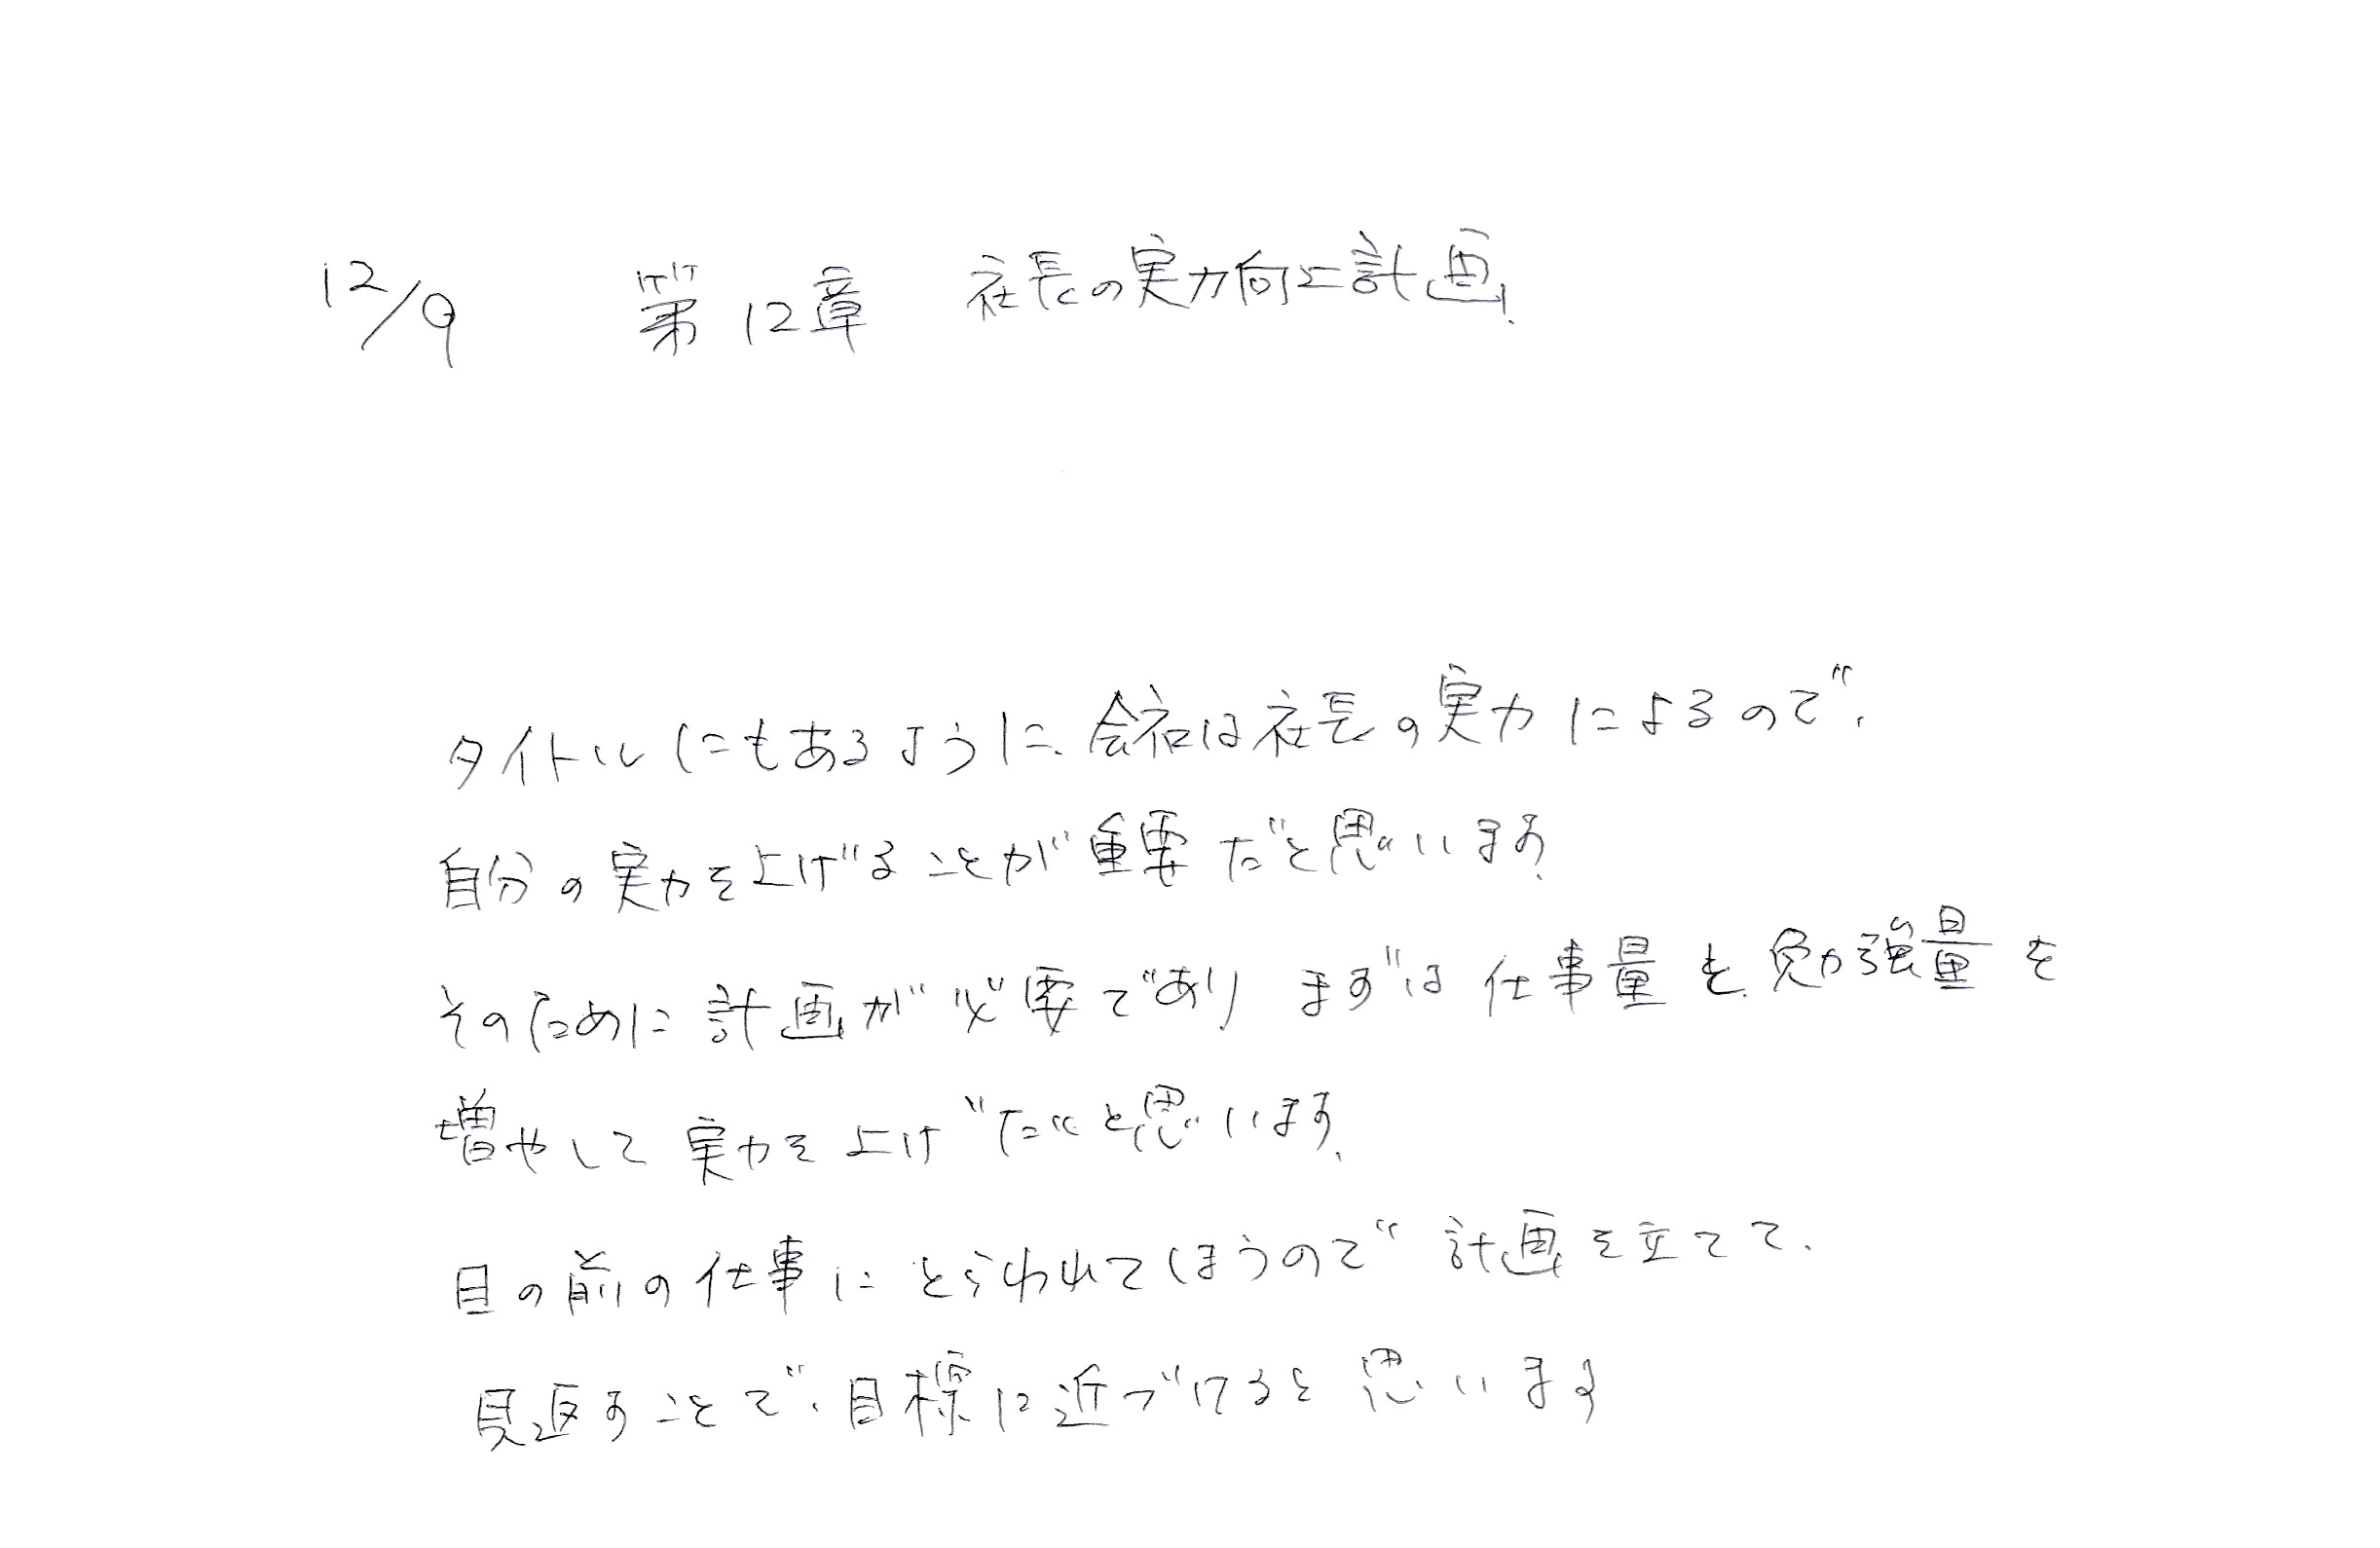 12/9 第12章 社長の実力向上計画.
タイトルにもあるように、会社は社長の実力によるので、
自分の実力を上げることが重要だと思います.
そのために計画が必要であり まずは仕事量と勉強量を
増やして 実力を上げたいと思います.
目の前の仕事にとらわれてしまうので 計画を立てて、
見返すことで、目標に近づけると思います